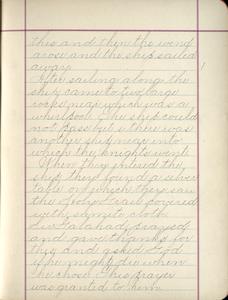 this and then the wind
arose and the ship sailed
away.
After sailing along the
ship came to two large
rocks near which was a
whirlpool. The ship could
not pass but there was
another ship near into
which the knights went.
When they entered the
ship they found a silver
table on which they saw
the Holy Grail covered
with samite cloth.
Sir Galahad prayed
and gave thanks for
this and asked God
if he might die when
he chose. This prayer
was granted to him.